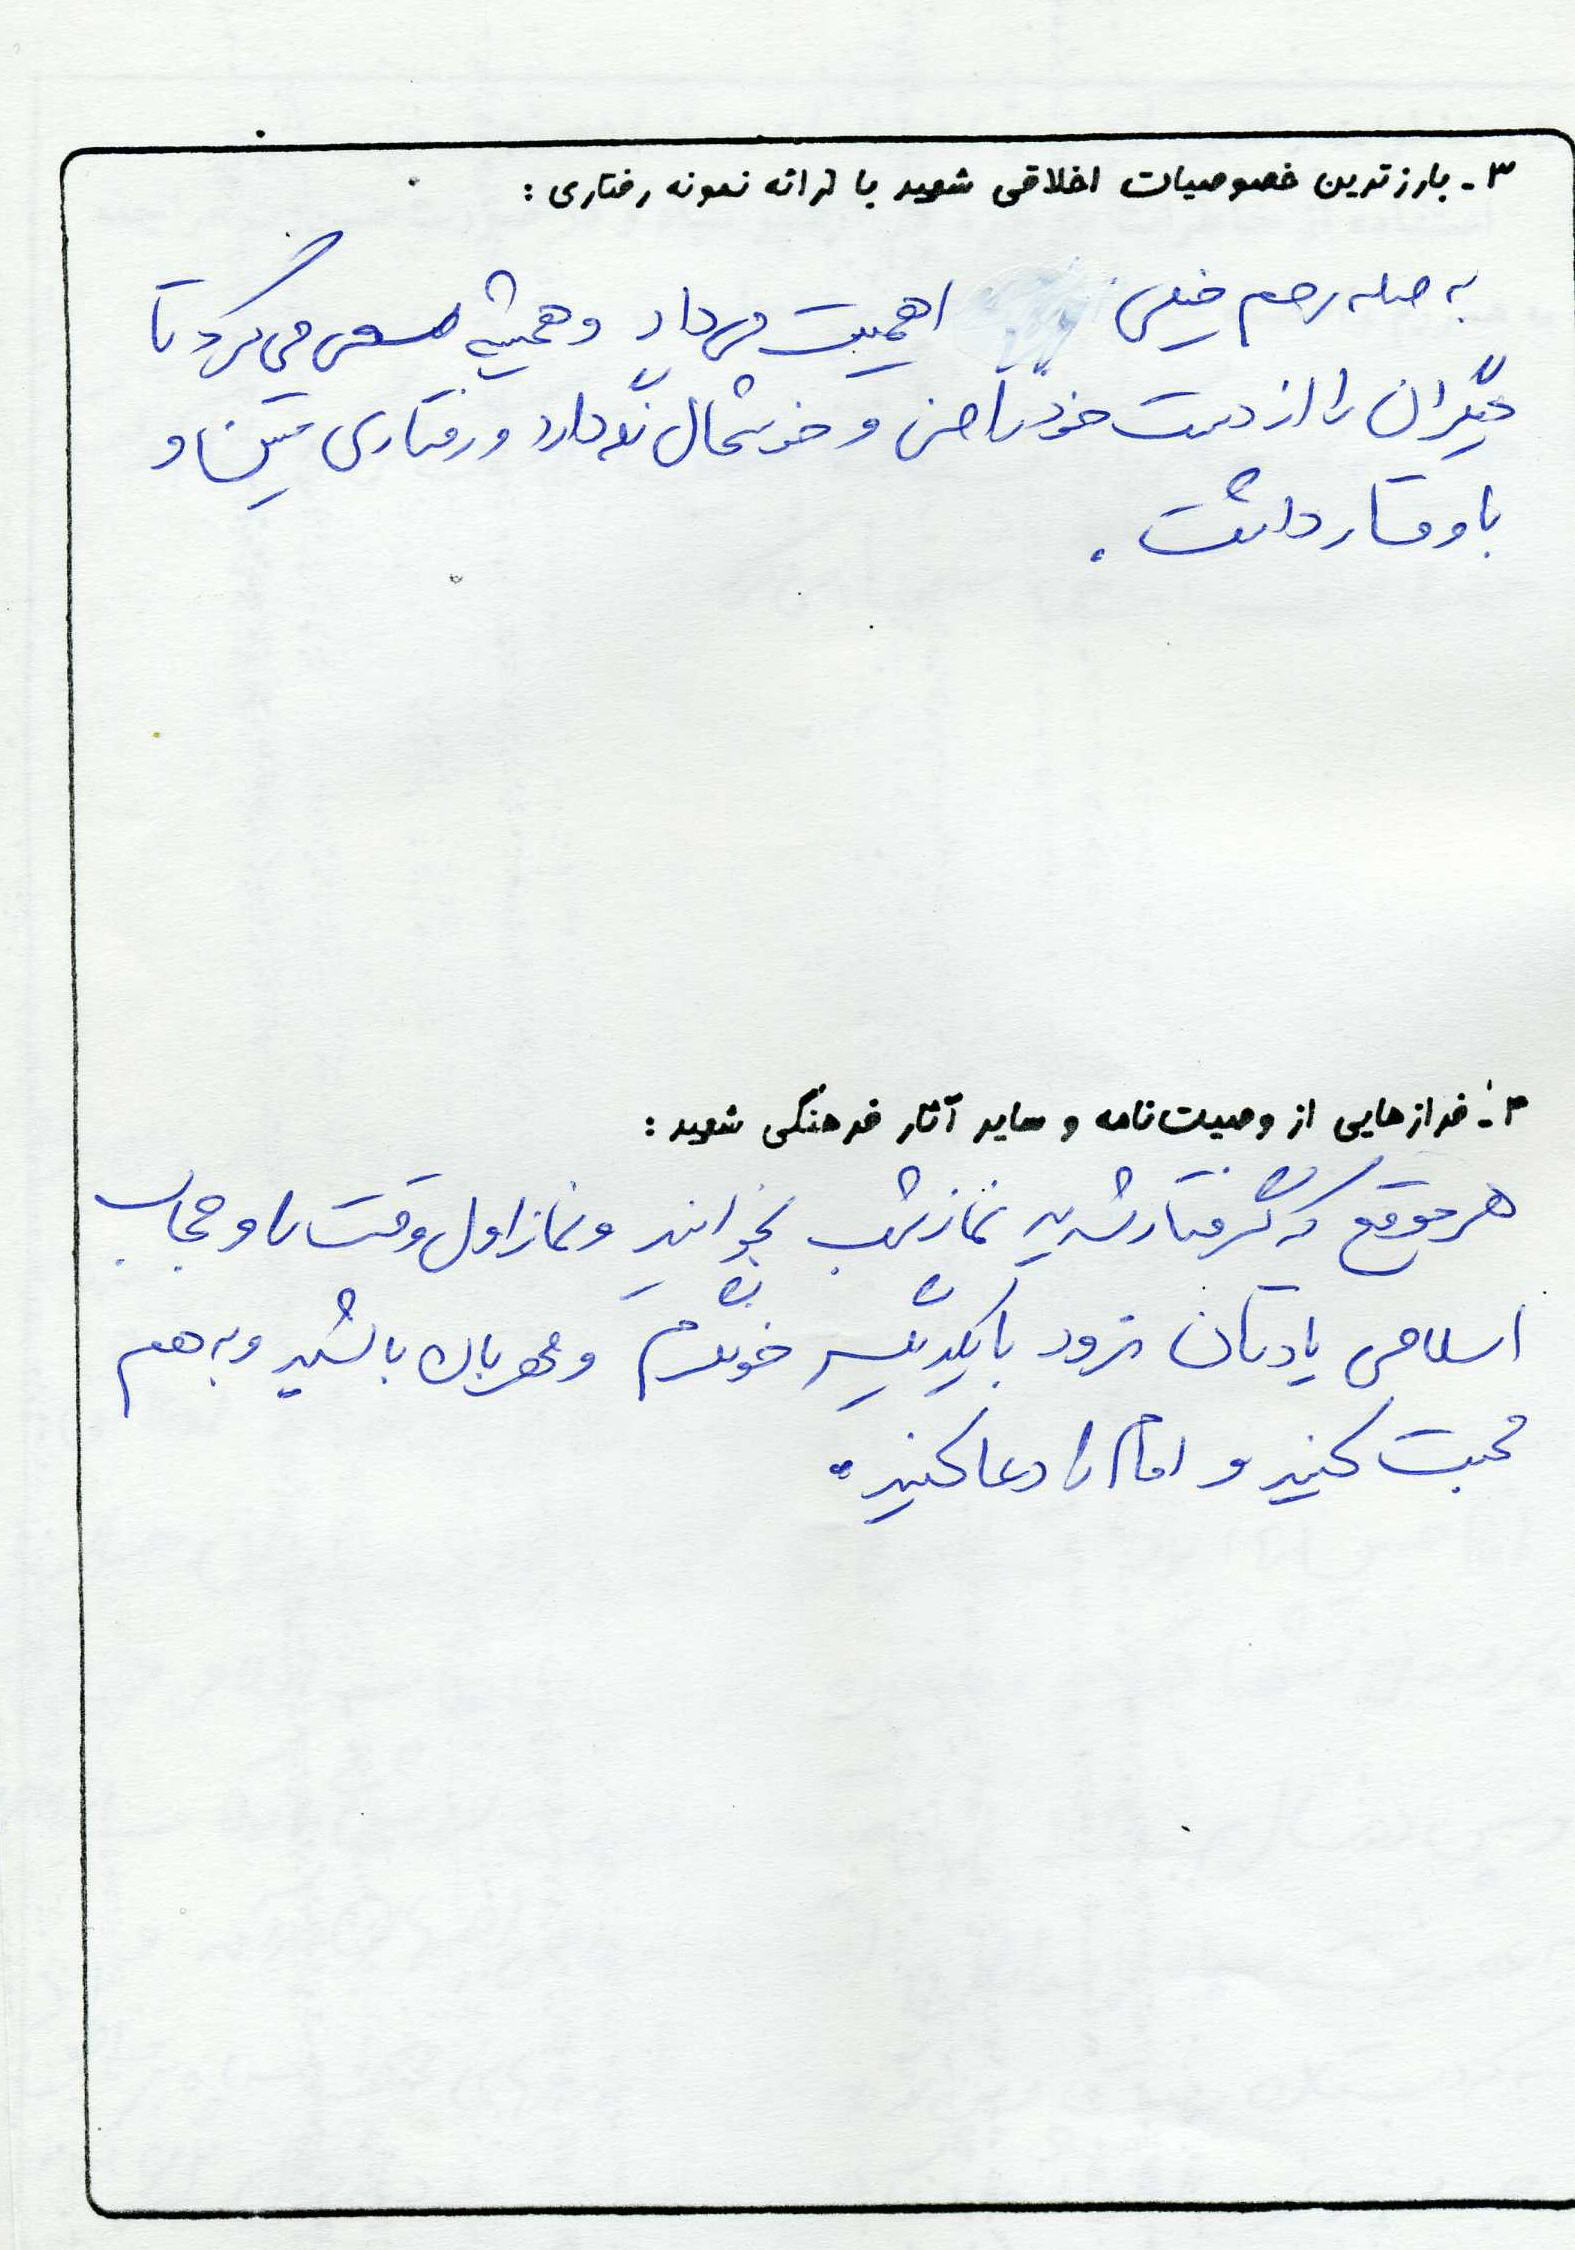 ۳- بارزترین خصوصیات اخلاقی شهید با ارائه نمونه رفتاری :
به صله رحم خیلی اهمیت میداد و همیشه سعی می کرد تا
دیگران را از دست خود راضی و خوشحال نگه دارد و رفتاری متین و
با وقار داشت .
۴- فرازهایی از وصیت‌نامه و سایر آثار فرهنگی شهید :
هر موقع که گرفتار شدید نماز شب بخوانید و نماز اول وقت را و حجاب
اسلامی یادتان نرود با یکدیگر خونگرم و مهربان باشید و به هم
محبت کنید و امام را دعا کنید .